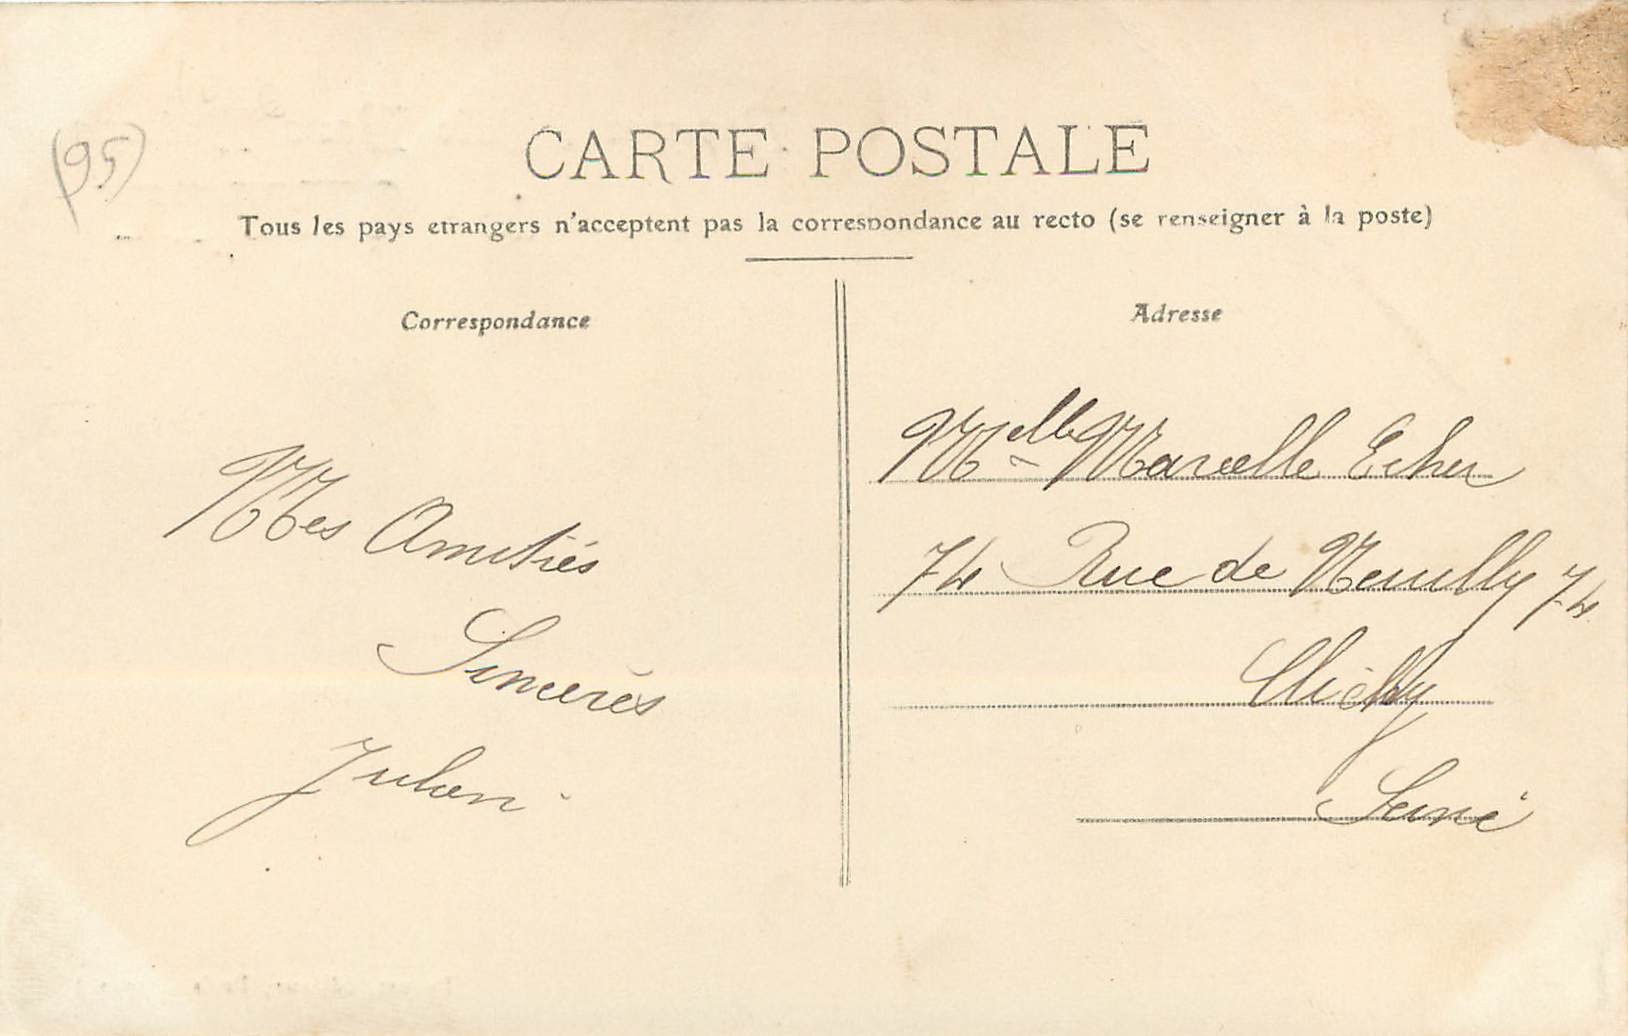 (95)
CARTE POSTALE
Tous les pays etrangers n'acceptent pas la correspondance au recto (se renseigner à la poste)
Correspondance
Mes Amitiés
Sincerès
Julien
Adresse
Melle Marcelle Echer
74 Rue de Neuilly 74
Clichy
Seine